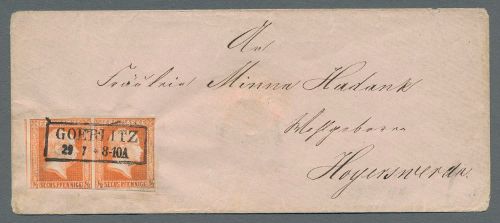 An
Fräulein Minna Hadank
Wohlgeboren
Hoyerswerda
GOERLITZ
29 7 * 8-10A
½ SECHS PFENNIGE ½ ½ SECHS PFENNIGE ½